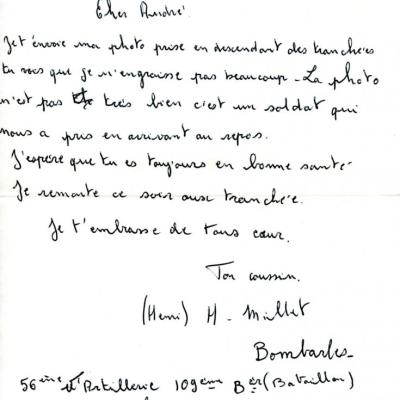 Cher André.
Je t'envoie ma photo prise en descendant des tranchées
tu vois que je n'engraisse pas beaucoup - La photo
n'est pas très bien c'est un soldat qui
nous a pris en arrivant au repos.
J'espère que tu es toujours en bonne santé
Je remonte ce soir aux tranchée.
Je t'embrasse de tous cœur.
Ton coussin.
(Henri) H - Millet
Bombardes -
56ème d'Artillerie 109ème Ber (Bataillon)